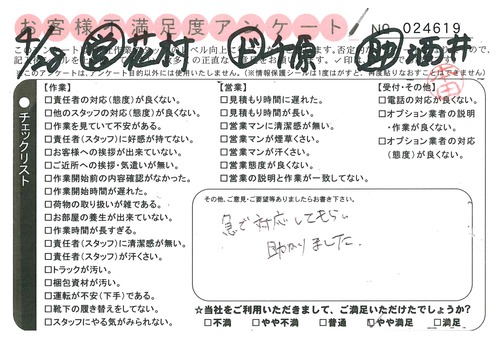 お客様不満足度アンケート
No 024619
このアンケートは
レベル向上に
※このアンケートは、アンケート目的以外には使用いたしません。(※情報保護シールは1度はがすと、再度貼りなおすことはできません)
チェックリスト
【作業】
□責任者の対応(態度)が良くない。
□他のスタッフの対応(態度)が良くない。
□作業を見ていて不安がある。
□責任者(スタッフ)に好感が持てない。
□お客様への挨拶が出来ていない。
□ご近所への挨拶・気遣いが無い。
□作業開始前の内容確認がなかった。
□作業開始時間が遅れた。
□荷物の取り扱いが雑である。
□お部屋の養生が出来ていない。
□作業時間が長すぎる。
□責任者(スタッフ)に清潔感が無い。
□責任者(スタッフ)が汗くさい。
□トラックが汚い。
□梱包資材が汚い。
□運転が不安(下手)である。
□靴下の履き替えをしてない。
□スタッフにやる気がみられない。
【営業】
□見積もり時間に遅れた。
□見積もり時間が長い。
□営業マンに清潔感が無い。
□営業マンが煙草くさい。
□営業マンが汗くさい。
□営業態度が良くない。
□営業の説明と作業が一致してない。
【受付・その他】
□電話の対応が良くない。
□オプション業者の説明
・作業が良くない。
□オプション業者の対応
(態度)が良くない。
その他、ご意見・ご要望等ありましたらお書き下さい。
急で対応してもらい
助かりました。
☆当社をご利用いただきまして、ご満足いただけたでしょうか?
□不満 □やや不満 □普通 □やや満足 □満足